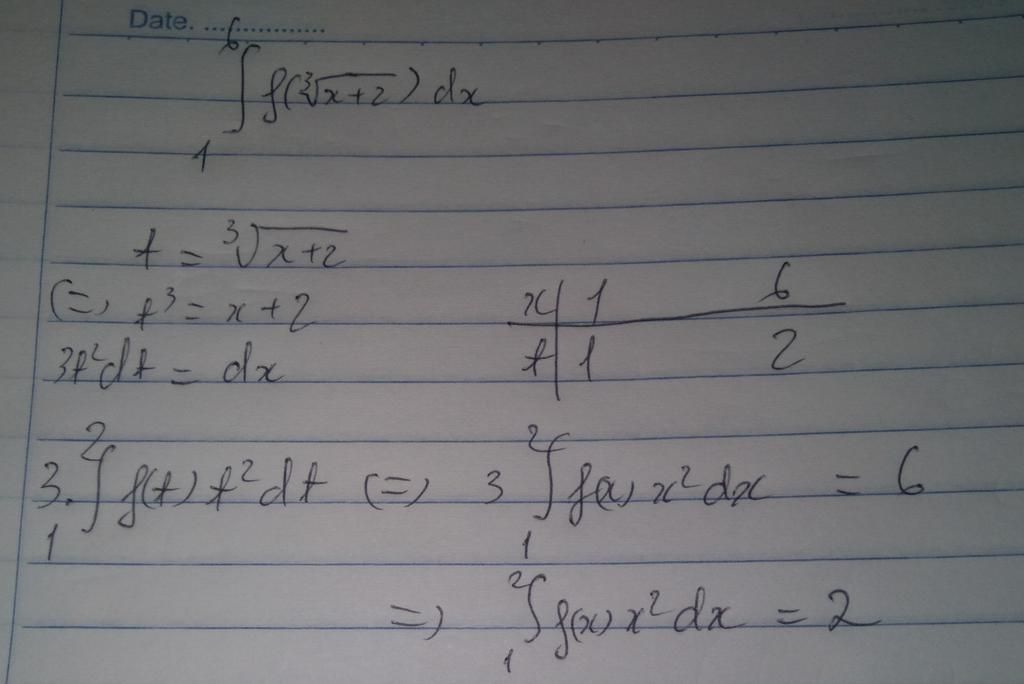 Date. ................
∫₁⁶ f(∛(x+2)) dx
t = ∛(x+2)
(=) t³ = x+2
x | 1 6
3t²dt = dx
t | 1 2
3.∫₁² f(t) t²dt (=) 3 ∫₁² f(x) x²dx = 6
=) ∫₁² f(x) x²dx = 2